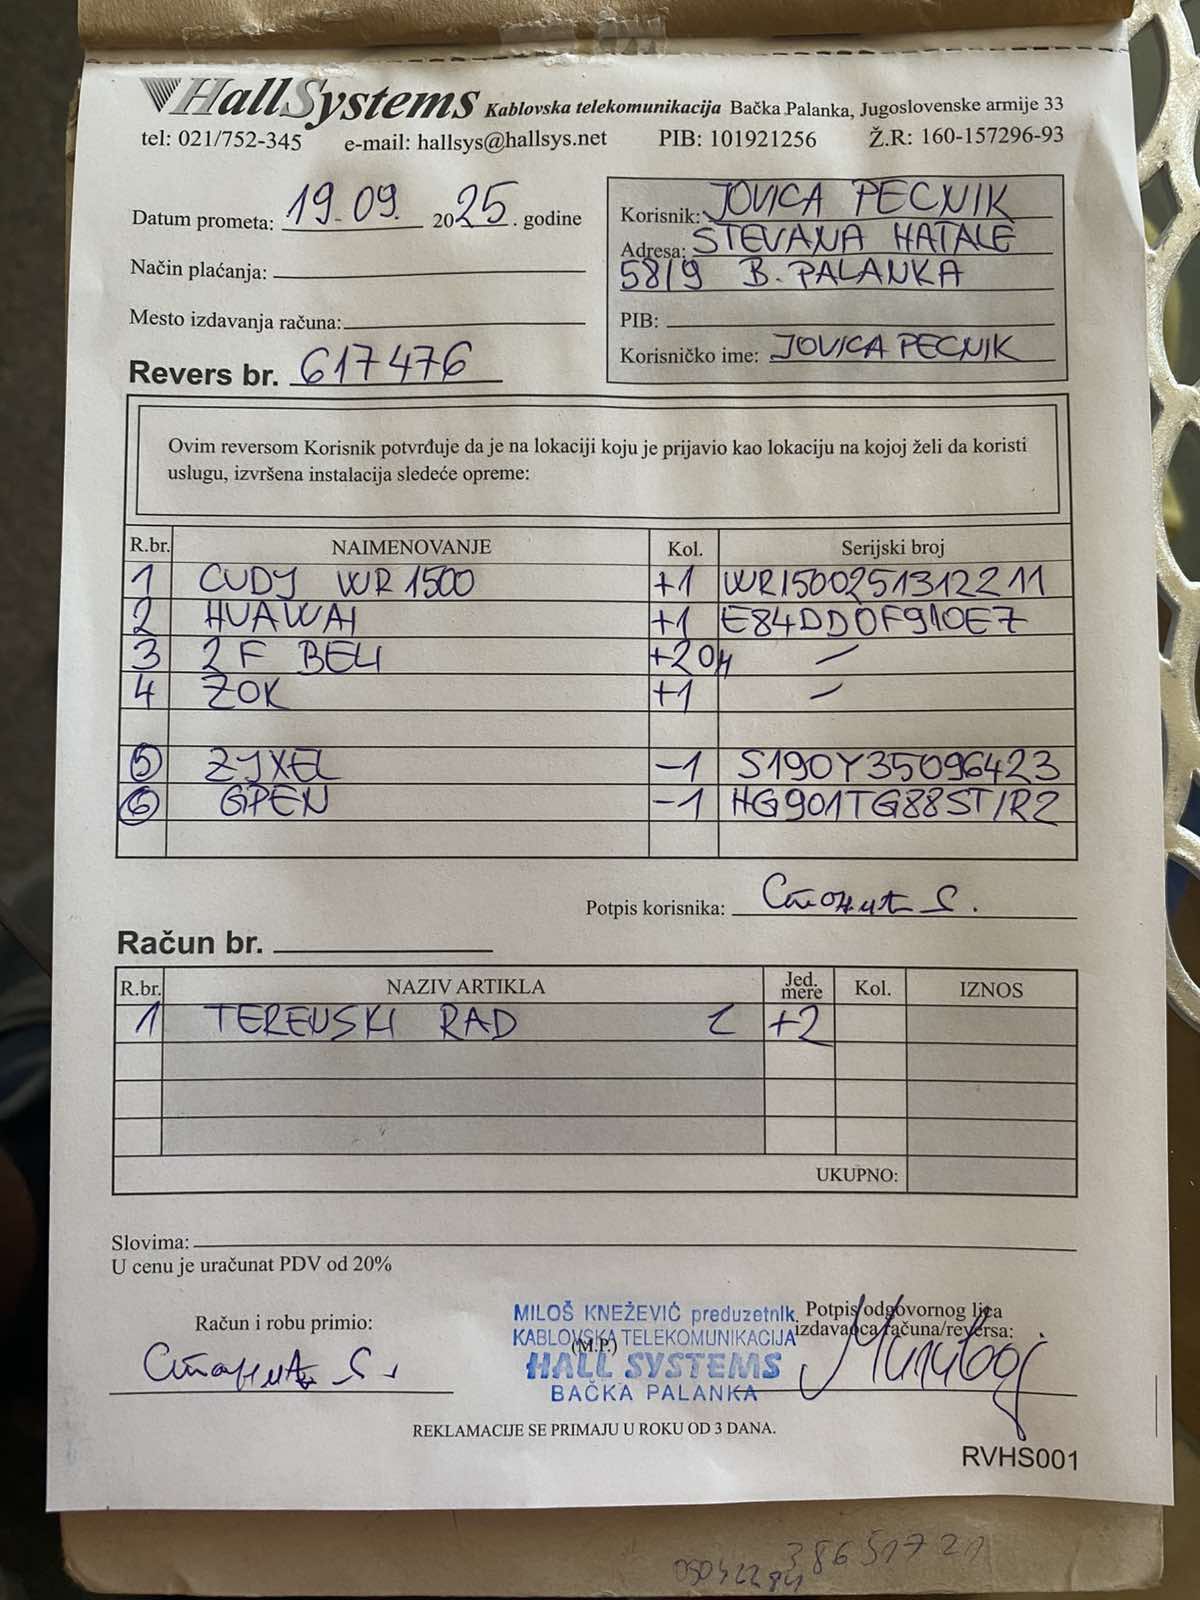 HallSystems Kablovska telekomunikacija Bačka Palanka, Jugoslovenske armije 33
tel: 021/752-345 e-mail: hallsys@hallsys.net PIB: 101921256 Ž.R: 160-157296-93
Datum prometa: 19.09. 2025. godine
Način plaćanja:
Mesto izdavanja računa:
Revers br. 617476
Korisnik: JOVICA PECNIK
Adresa: STEVANA HATALE
58/9 B. PALANKA
PIB:
Korisničko ime: JOVICA PECNIK
Ovim reversom Korisnik potvrđuje da je na lokaciji koju je prijavio kao lokaciju na kojoj želi da koristi
uslugu, izvršena instalacija sledeće opreme:
R.br. NAIMENOVANJE Kol. Serijski broj
1 CUDY WR 1500 +1 WR1500251312211
2 HUAWAI +1 E84DD0F910E7
3 2F BELI +20M —
4 ZOK +1 —
5 ZYXEL -1 S190Y35096423
6 GPEN -1 HG901TG88ST/R2
Potpis korisnika:
Račun br.
R.br. NAZIV ARTIKLA Jed. mere Kol. IZNOS
1 TERENSKI RAD +2
UKUPNO:
Slovima:
U cenu je uračunat PDV od 20%
Račun i robu primio:
MILOŠ KNEŽEVIĆ preduzetnik
KABLOVSKA TELEKOMUNIKACIJA
(M.P.)
HALL SYSTEMS
BAČKA PALANKA
Potpis odgovornog lica
izdavaoca računa/reversa:
REKLAMACIJE SE PRIMAJU U ROKU OD 3 DANA.
RVHS001